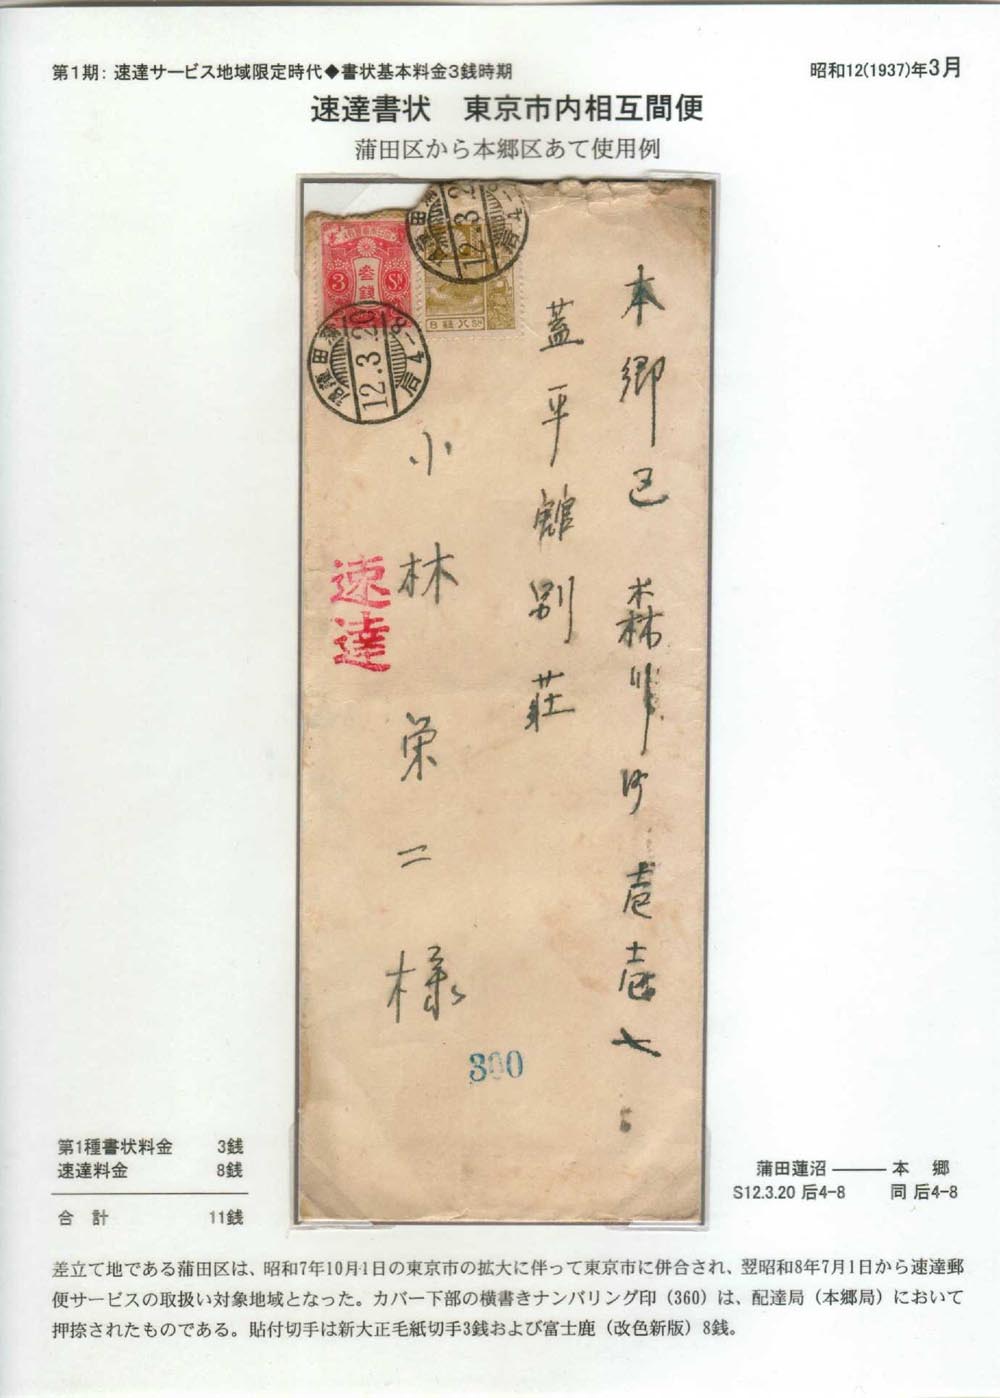 第1期：速達サービス地域限定時代◆書状基本料金3銭時期
昭和12(1937)年3月
速達書状　東京市内相互間便
蒲田区から本郷区あて使用例
3 参銭 Sn
12.3.20
后4-8
12.3.20
后4-8
本郷区森川町壱壱七
蓋平館別荘
小林栄二様
速達
第1種書状料金　3銭
速達料金　8銭
合計　11銭
蒲田蓮沼――本　郷
S12.3.20 后4-8　同 后4-8
差立て地である蒲田区は、昭和7年10月1日の東京市の拡大に伴って東京市に併合され、翌昭和8年7月1日から速達郵
便サービスの取扱い対象地域となった。カバー下部の横書きナンバリング印（360）は、配達局（本郷局）において
押捺されたものである。貼付切手は新大正毛紙切手3銭および富士鹿（改色新版）8銭。